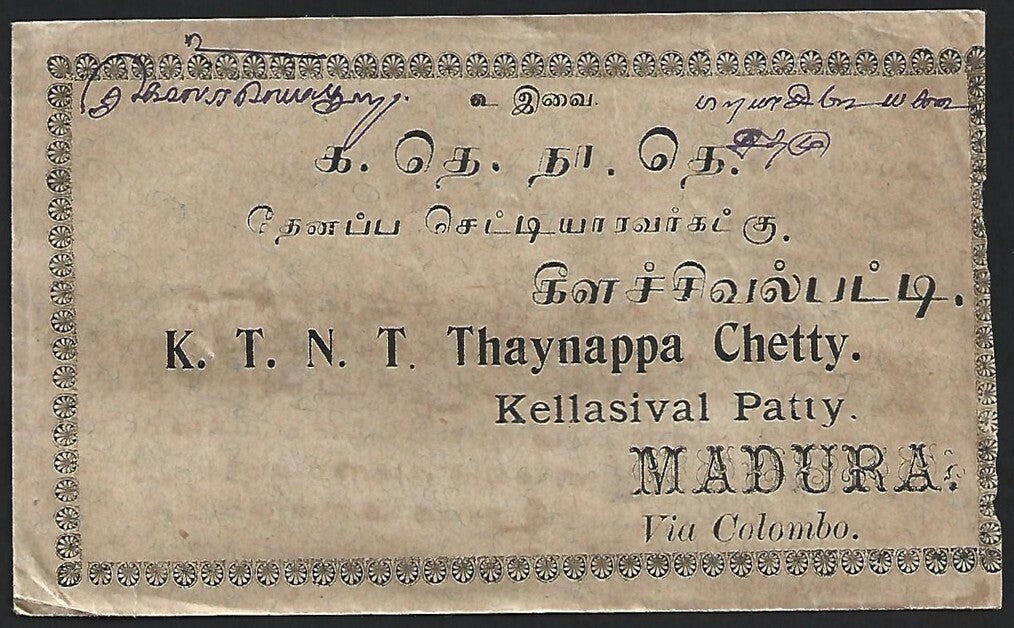 உ இவை.
க. தெ. நா. தெ.
தேனப்ப செட்டியாரவர்கட்கு.
கீளச்சிவல்பட்டி.
K. T. N. T. Thaynappa Chetty.
Kellasival Patty.
MADURA.
Via Colombo.